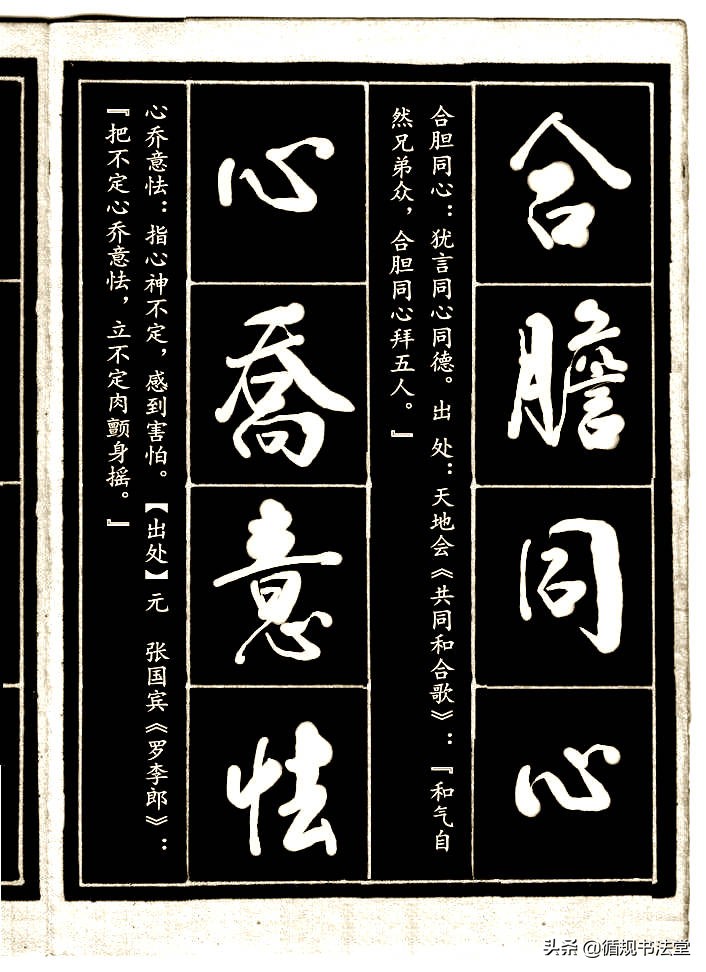 合膽同心
合胆同心：犹言同心同德。出 处：天地会《共同和合歌》：『和气自
然兄弟众，合胆同心拜五人。』
心喬意怯
心乔意怯：指心神不定，感到害怕。【出处】元 张国宾《罗李郎》：
『把不定心乔意怯，立不定肉颤身摇。』
头条 @循规书法堂